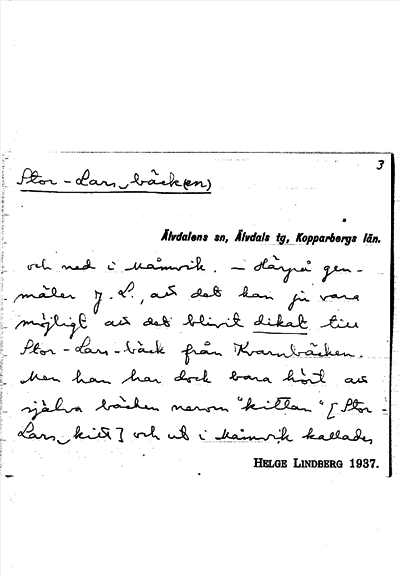 3
Stor-Lars-bäck(en)
Älvdalens sn, Älvdals tg, Kopparbergs län.
och ned i Måmvik. – Härpå gen-
mäler J. L., att det kan ju vara
möjligt att det blivit dikat till
Stor-Lars-bäck från Kvarnbäcken.
Men han har dock bara hört att
själva bäcken nerom "kittan" [Stor-
Lars-kitt] och ut i Måmvik kallades
HELGE LINDBERG 1937.